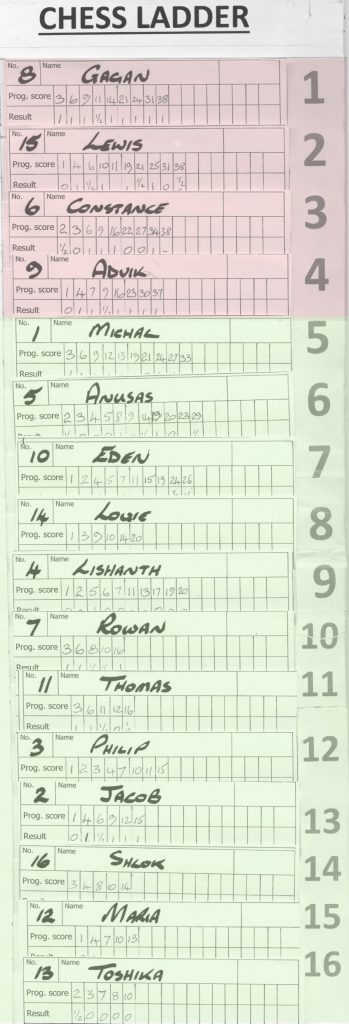 CHESS LADDER
No. 8 Name GAGAN
Prog. score 3 6 9 11 14 21 24 31 38
Result 1 1 1 ½ 1 1 1 1 1
1
No. 15 Name LEWIS
Prog. score 1 4 6 10 11 19 21 25 31 38
Result 0 1 ½ 1 1 ½ 1 0 ½
2
No. 6 Name CONSTANCE
Prog. score 2 3 6 9 16 22 27 34 38
Result ½ 0 1 1 1 0 0 1 -
3
No. 9 Name ADVIK
Prog. score 1 4 7 9 16 23 30 37
Result
4
No. 1 Name MICHAL
Prog. score 3 6 9 12 13 19 21 24 27 33
5
No. 5 Name ANUSAS
Prog. score 2 3 4 5 8 9 14 19 20 23 29
6
No. 10 Name EDEN
Prog. score 1 2 4 5 7 11 15 19 24 26
7
No. 14 Name LOUIE
Prog. score 1 3 9 10 14 20
8
No. 4 Name LISHANTH
Prog. score 1 2 5 6 7 11 13 17 19 20
9
No. 7 Name ROWAN
Prog. score 3 6 8 10 16
10
No. 11 Name THOMAS
Prog. score 3 6 11 12 16
Result
11
No. 3 Name PHILIP
Prog. score 1 2 3 4 7 10 11 15
12
No. 2 Name JACOB
Prog. score 1 4 6 9 12 15
Result 0 1 ½ 1 1 1
13
No. 16 Name SHLOK
Prog. score 3 4 8 10 14
14
No. 12 Name MARIA
Prog. score 1 4 7 10 13
15
No. 13 Name TOSHIKA
Prog. score 2 3 7 8 10
Result ½ 0 0 0 0
16